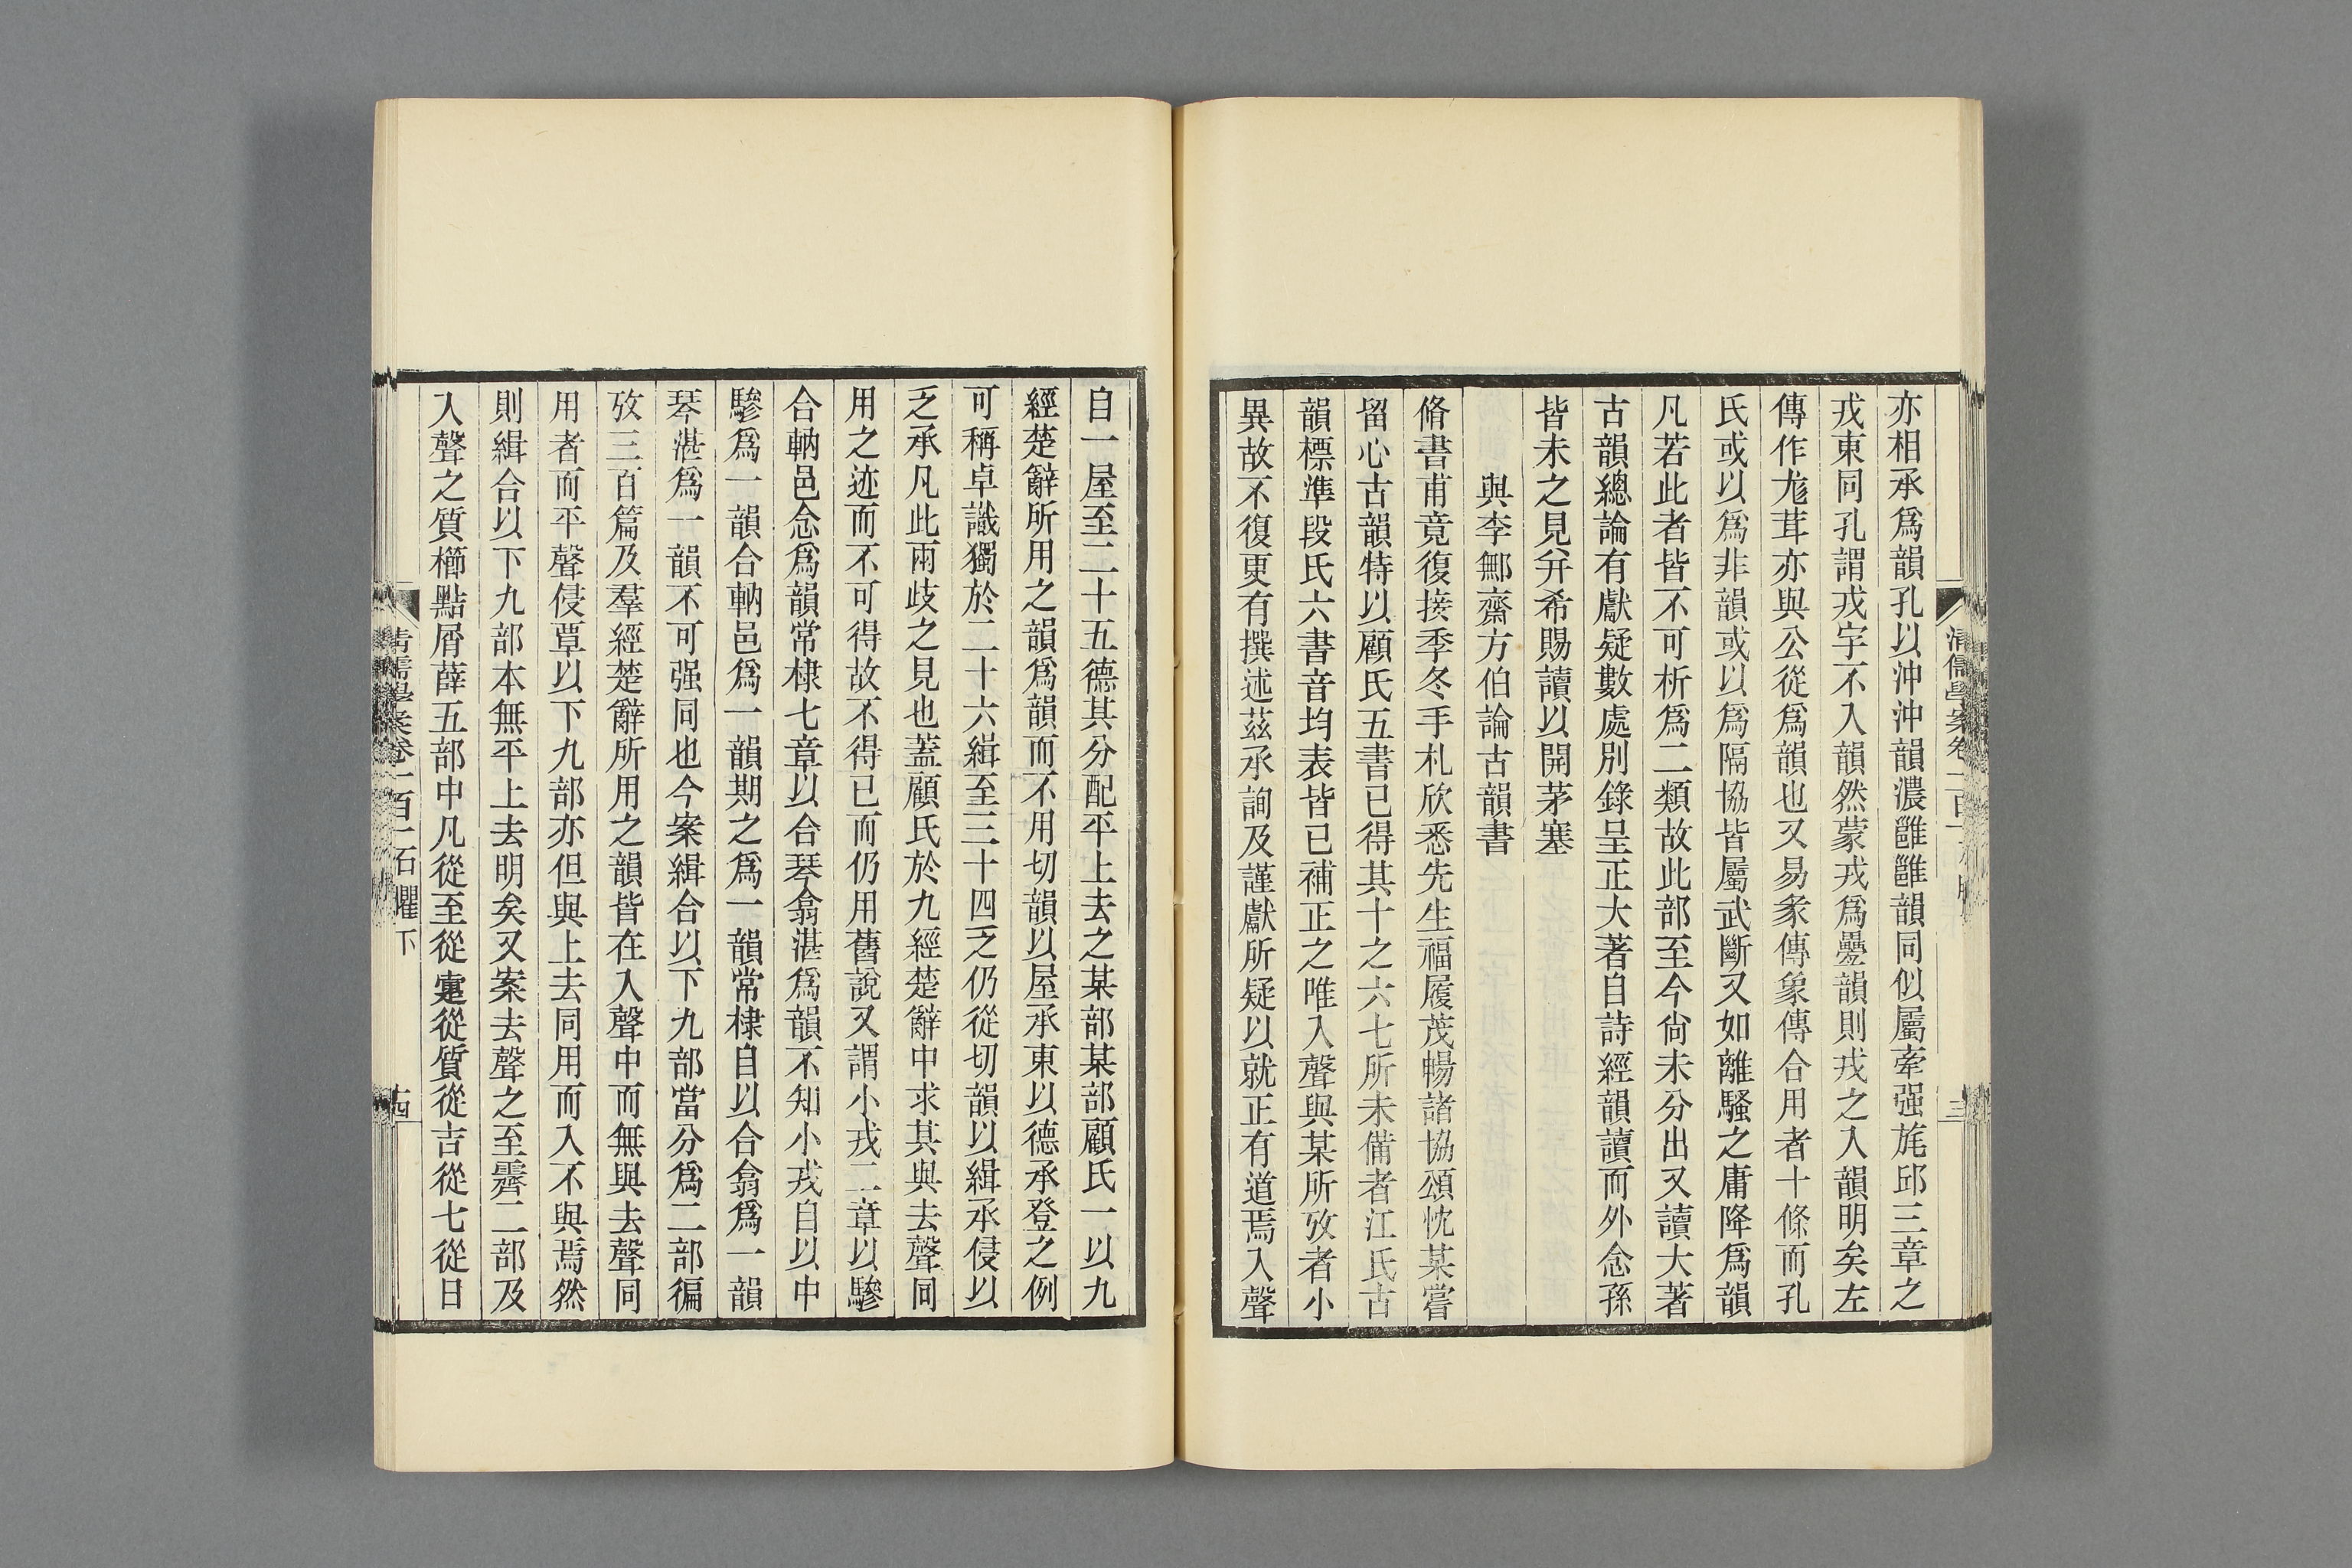 亦相承爲韻孔以沖沖韻濃雝雝韻同似屬牽强旄邱三章之
戎東同孔謂戎字不入韻然蒙戎爲曡韻則戎之入韻明矣左
傳作尨茸亦與公從爲韻也又易彖傳象傳合用者十條而孔
氏或以爲非韻或以爲隔協皆屬武斷又如離騷之庸降爲韻
凡若此者皆不可析爲二類故此部至今尙未分出又讀大著
古韻總論有獻疑數處別錄呈正大著自詩經韻讀而外念孫
皆未之見幷希賜讀以開茅塞
與李鄦齋方伯論古韻書
脩書甫竟復接季冬手札欣悉先生福履茂暢諸協頌忱某嘗
留心古韻特以顧氏五書已得其十之六七所未備者江氏古
韻標準段氏六書音均表皆已補正之唯入聲與某所攷者小
異故不復更有撰述茲承詢及謹獻所疑以就正有道焉入聲
自一屋至二十五德其分配平上去之某部某部顧氏一以九
經楚辭所用之韻爲韻而不用切韻以屋承東以德承登之例
可稱卓識獨於二十六緝至三十四乏仍從切韻以緝承侵以
乏承凡此兩歧之見也蓋顧氏於九經楚辭中求其與去聲同
用之迹而不可得故不得已而仍用舊說又謂小戎二章以驂
合軜邑念爲韻常棣七章以合琴翕湛爲韻不知小戎自以中
驂爲一韻合軜邑爲一韻期之爲一韻常棣自以合翕爲一韻
琴湛爲一韻不可强同也今案緝合以下九部當分爲二部徧
攷三百篇及羣經楚辭所用之韻皆在入聲中而無與去聲同
用者而平聲侵覃以下九部亦但與上去同用而入不與焉然
則緝合以下九部本無平上去明矣又案去聲之至霽二部及
入聲之質櫛黠屑薛五部中凡從至從疐從質從吉從七從日
清儒學案卷一百一石臞下
十四